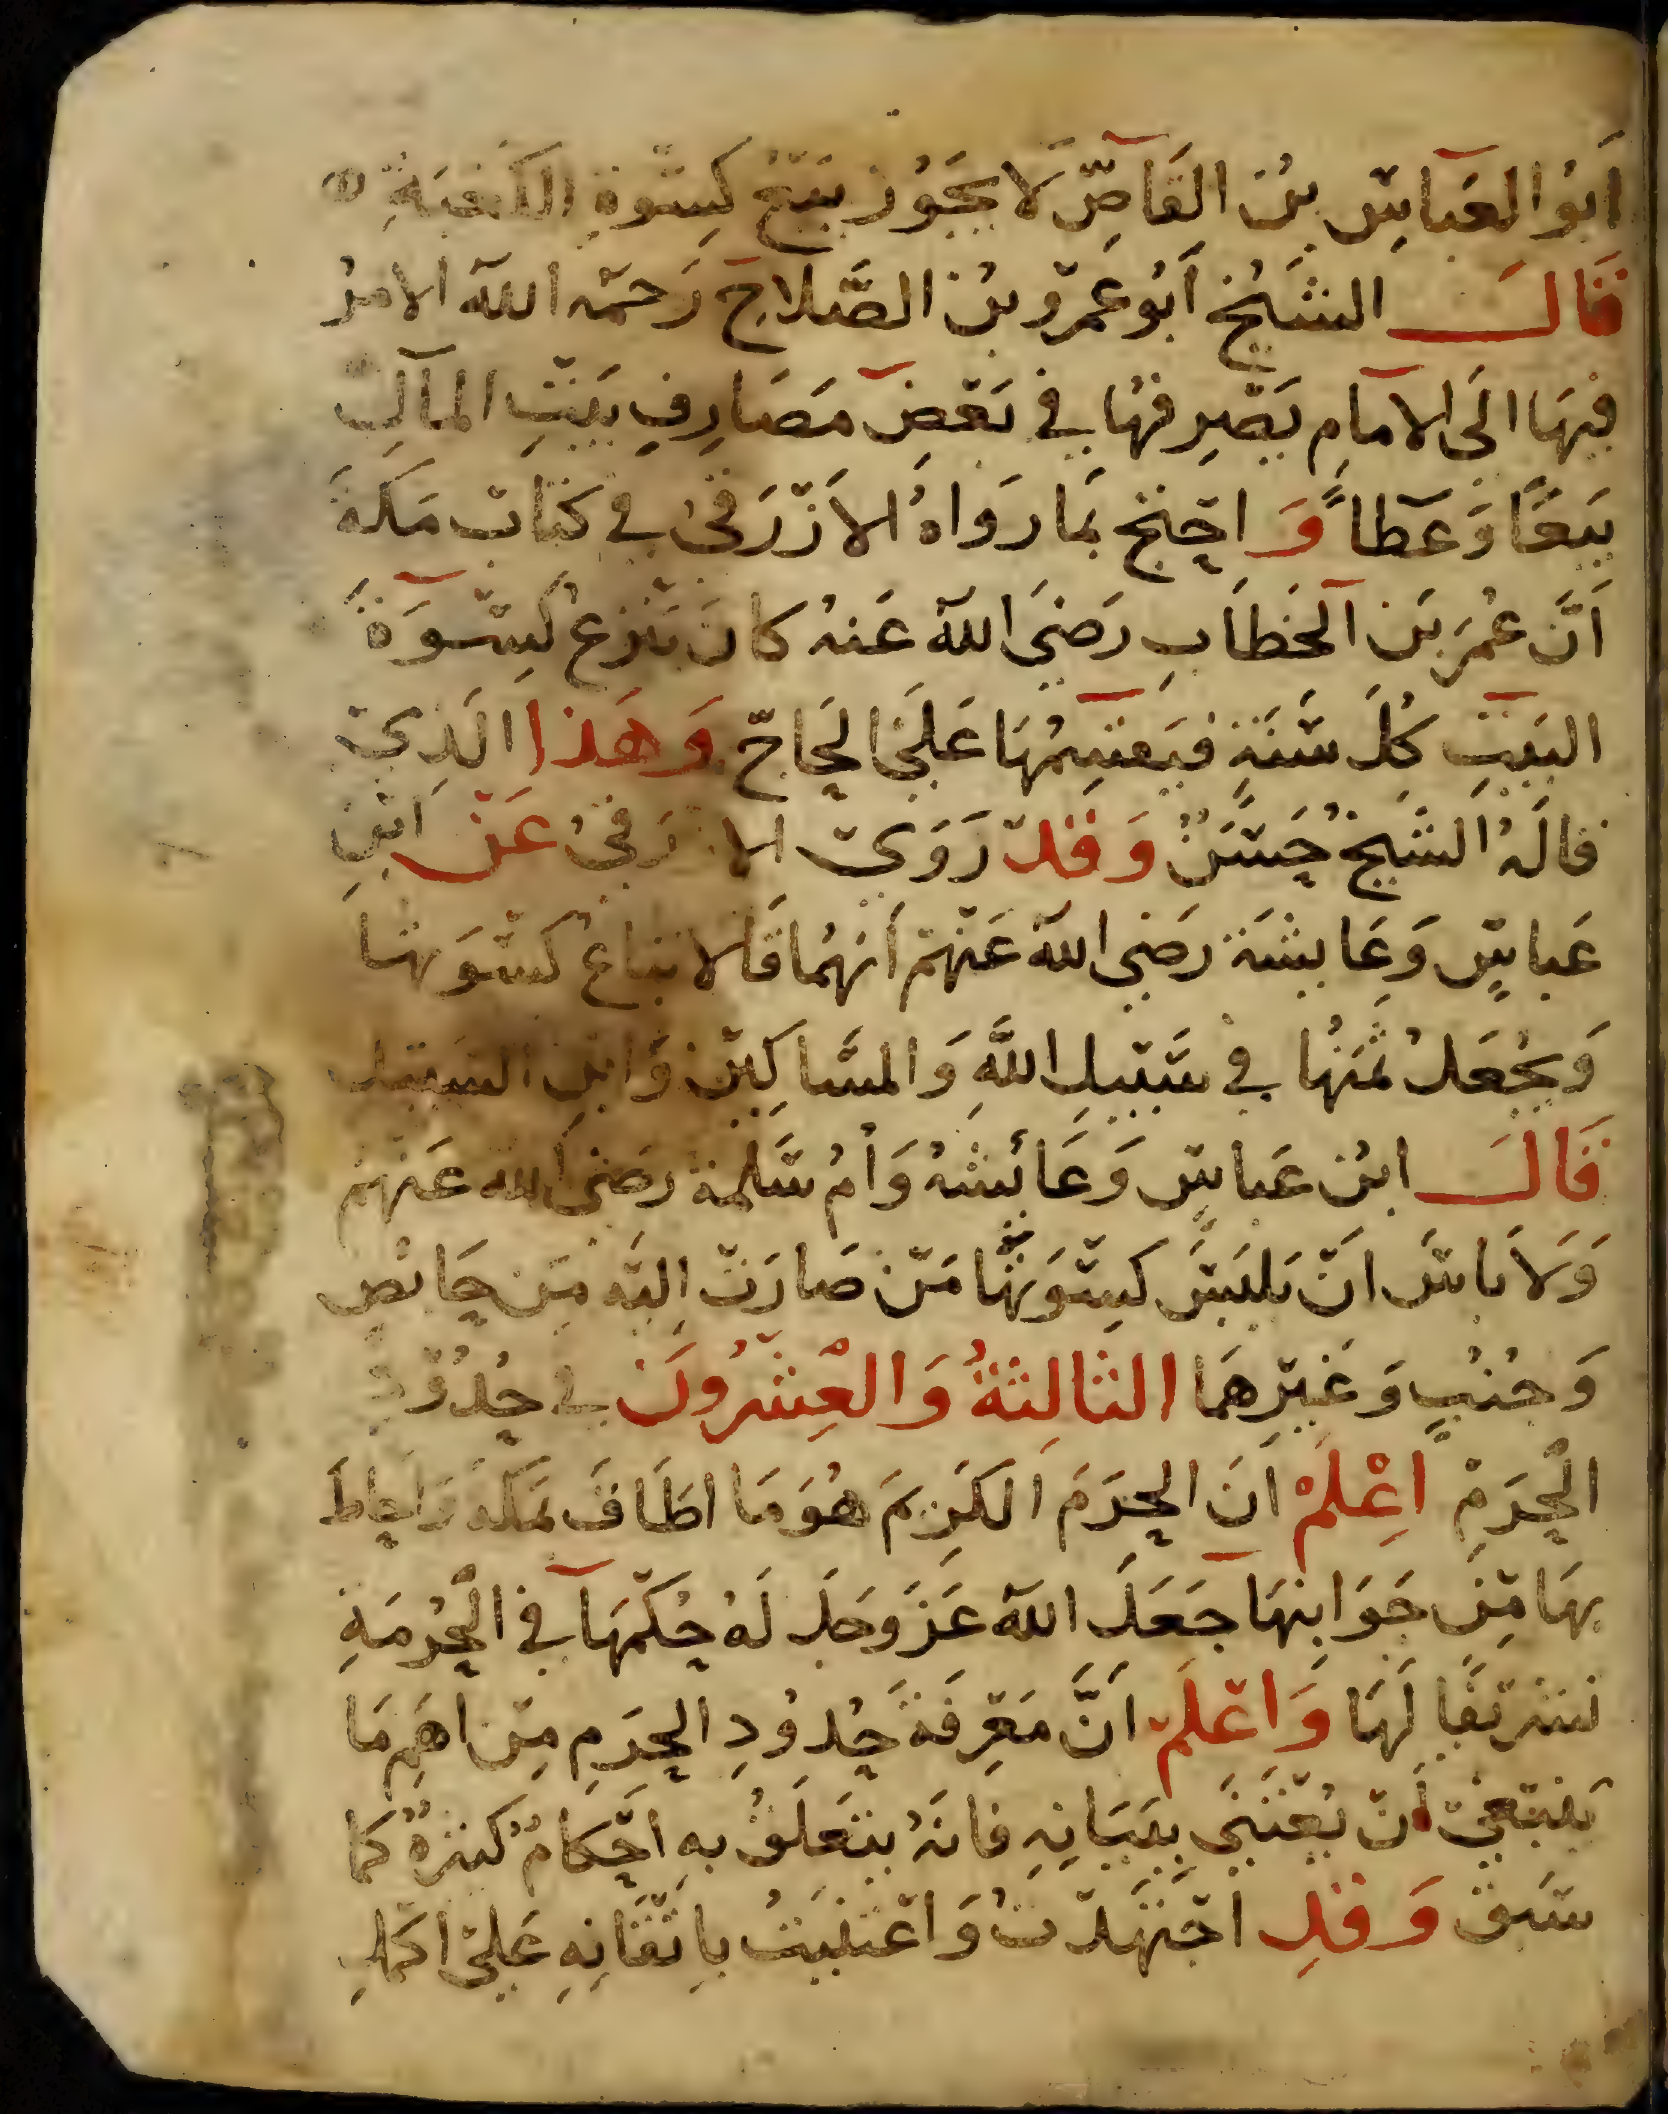 اَبُو العَباسِ بنُ القَاصِّ لَا يجَوُز بَيْعُ كِسْوَةِ الكَعْبَةِ
قَالَ الشَيْخ اَبُو عَمْرٍو بنُ الصَّلاحِ رَحمَه اللّه الامرُ
فيهَا الَى الامَامِ يَصْرِفهَا في بَعْضِ مَصَارِفِ بَيْتِ المَالِ
بَيعًا وَعَطاً وَ احتج بمَا رَوَاهُ الاَزْرَقىُ فى كتَاب مَكةَ
اَنَّ عُمرَ بَن الخطَابِ رَضىَ اللّه عَنهُ كانَ يَنْزِعُ كِسْوَةَ
البَيْتِ كُلَ سَنَةٍ فيَقسِمُهَا عَلَى الحَاجّ وَهَذا الَذِي
قالَهُ الشَيخُ حَسَنٌ وَقَدْ رَوَى الا رَقىُ عَنْ ابْنِ
عَباسٍ وَعَايشَة رَضىِ اللّه عَنْهُمْ اَنهُمَا قَالا تباعُ كسْوَتهَا
وَيُجْعَلُ ثمَنُهَا في سَبْيلِ اللَّهِ وَالمسَاكِيْن وَابْنِ السَبْيل
قَالَ ابنُ عَباسٍ وَعَائشهُ وَأمُ سَلمة رَضىَ اللّه عَنْهُمْ
وَلَا بَاسَ انْ يَلبَسَ كِسْوَتَهَا مَنْ صَارَتْ اِليْه مِن حَائضٍ
وَجُنُبٍ وَغَيْرِهمَا الثالِثةُ وَالْعِشْرُونَ فى حُدُوُدِ
الْحَرَمْ اِعْلَمْ اَنَ الحَرَمَ الكَرِيمَ هُوَ مَا اطَافَ بمَكةَ وَاحَاطَ
بهَا مِنْ جَوَانِبهَا جَعَلَ اللّه عَزَ وَجَلَ لَهُ حُكْمَهَا في الْحُرْمَةِ
تشرْيفًا لَهَا وَاعْلَمْ اَنَّ مَعْرِفَةَ حُدُودِ الحَرَمِ مِنْ اهَمِ مَا
يَنْبَغىْ أنْ يُعْتَنَى بِبَيَانِهِ فانَهُ يتَعَلَقُ بهِ احْكامٌ كثيرةٌ كمَا
سَبقَ وَقدِ اجْتَهَدْتُ وَاعْتنَيتُ باِتْقَانِهِ عَلىْ اكمَلِ